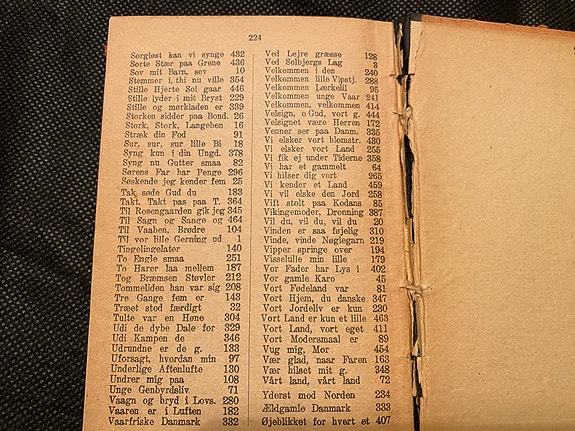 224
Sorgløst kan vi synge 432
Sorte Stær paa Grene 436
Sov mit Barn, sov 10
Stemmer i, thi nu ville 354
Stille Hjerte Sol gaar 446
Stille lyder i mit Bryst 229
Stille og mørkladen er 339
Storken sidder paa Bond. 26
Stork, Stork, Langeben 16
Stræk din Fod 91
Sur, sur, sur lille Bi 18
Syng kun i din Ungd. 378
Syng nu Gutter smaa 82
Sørens Far har Penge 296
Søskende jeg kender fem 25
Tak, søde Gud du 183
Takt. Takt pas paa T. 364
Til Rosengaarden gik jeg 345
Til Sagn og Sange og 464
Til Vaaben, Brødre 104
Til vor lille Gerning ud 1
Tingelingelater 140
To Engle smaa 251
To Harer laa mellem 187
Tog Bræmsen Støvler 212
Tommeliden han var sig 208
Tre Gange fem er 143
Træet stod færdigt 32
Tulte var en Høne 304
Udi de dybe Dale for 329
Udi Kampen de 346
Udrundne er de g. 133
Uforsagt, hvordan min 97
Underlige Aftenlufte 130
Undrer mig paa 108
Unge Genbyrdsliv. 71
Vaagn og bryd i Lovs. 280
Vaaren er i Luften 182
Vaarfriske Danmark 332
Ved Lejre græsse 128
Ved Solbjergs Lag 3
Velkommen i den 240
Velkommen lille Vipstj. 288
Velkommen Lærkelil 95
Velkommen unge Vaar 241
Velkommen, velkommen 414
Velsign, o Gud, vort g. 444
Velsignet være Herren 172
Venner ser paa Danm. 335
Vi elsker vort blomstr. 430
Vi elsker vort Land 255
Vi fik ej under Tiderne 358
Vi har et gammelt 64
Vi hilser dig vort 265
Vi kender et Land 459
Vi vil elske den Jord 258
Vift stolt paa Kodans 85
Vikingemoder, Dronning 387
Vil du, vil du, vil du 20
Vinden er saa føjelig 310
Vinde, vinde Nøglegarn 219
Vipper springe over 194
Visselulle min lille 179
Vor Fader har Lys i 402
Vor gamle Karo 45
Vort Fødeland var 81
Vort Hjem, du danske 347
Vort Jordeliv er kun 230
Vort Land er kun et lille 463
Vort Land, vort eget 411
Vort Modersmaal er 89
Vug mig, Mor 454
Vær glad, naar Faren 163
Vær hilset mit g. 348
Vårt land, vårt land 72
Yderst mod Norden 234
Ældgamle Danmark 333
Øjeblikket for hvert et 407